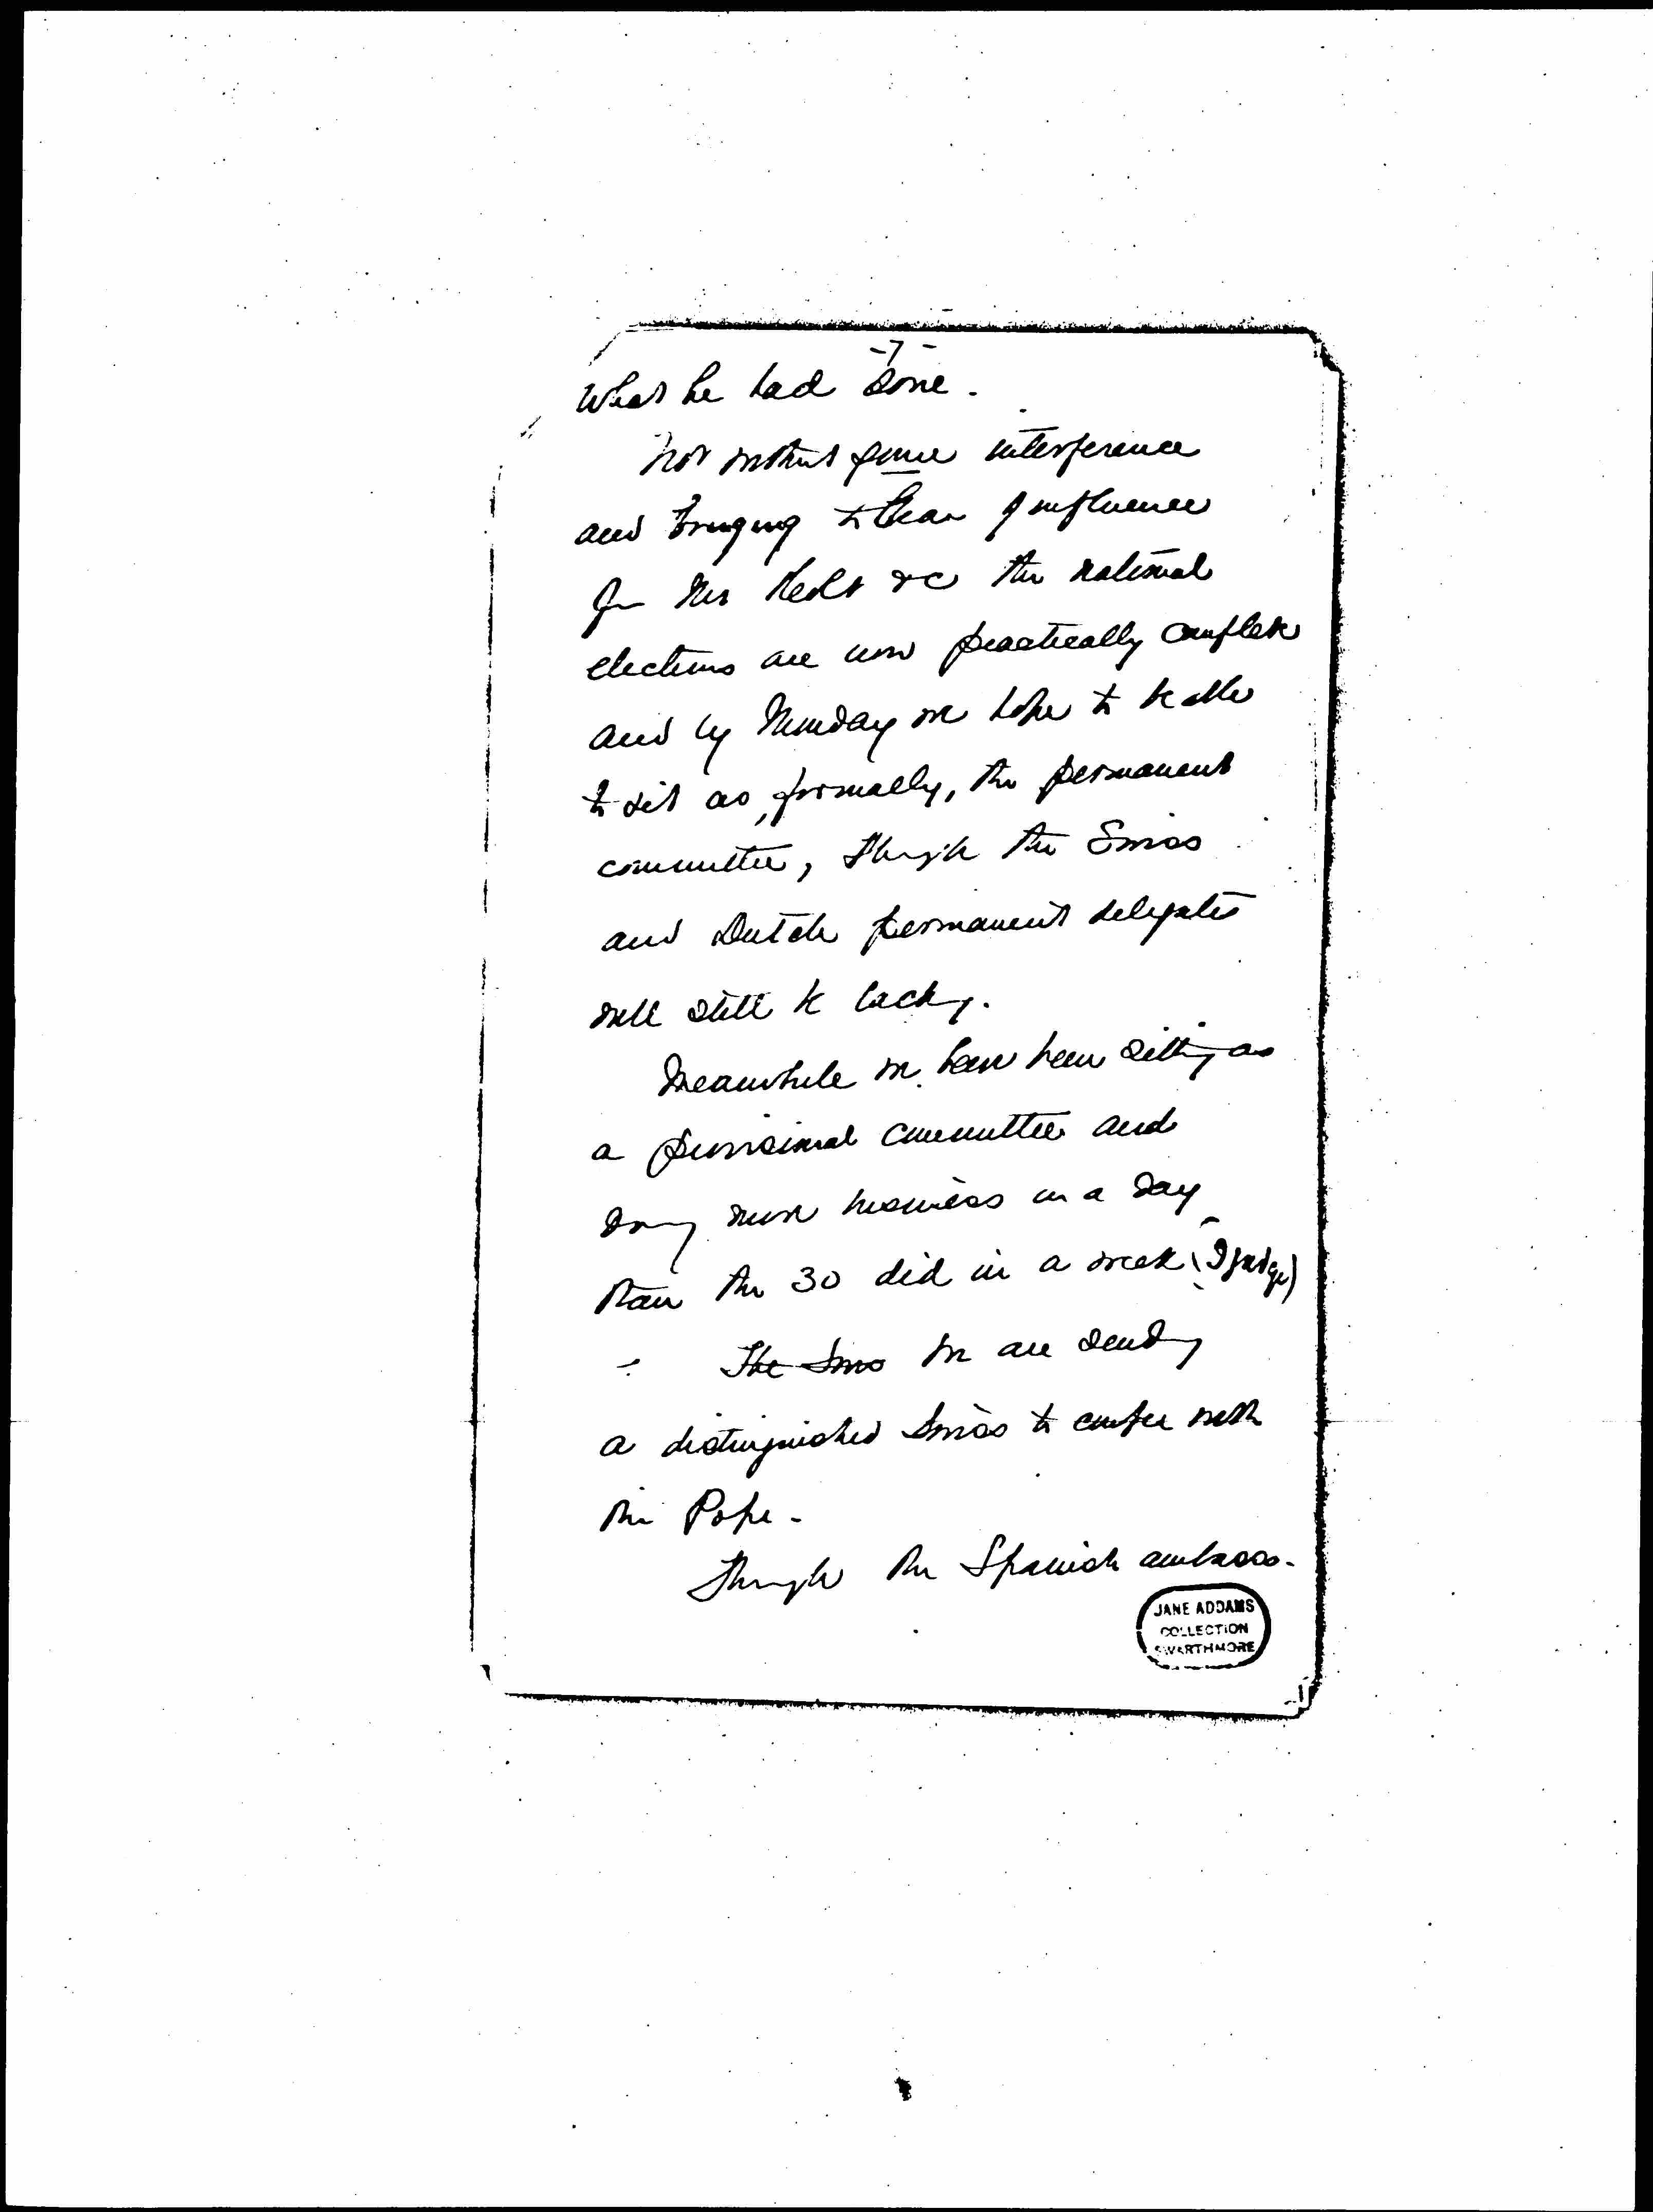 -7-
What he had done.
Not without some interference
and bringing to bear of influence
for Mr &c the national
elections are now practically complete
and by Monday we hope to be able
to sit as, formally, the permanent
committee, though the Swiss
and Dutch permanent delegates
will still be lacking.
Meanwhile we have been sitting as
a provisional committee and
doing more business in a day
than the 30 did in a week (I judge)
The Swiss We are sending
a distinguished Swiss to confer with
the Pope.
Through the Spanish ambass-
JANE ADDAMS
COLLECTION
SWARTHMORE